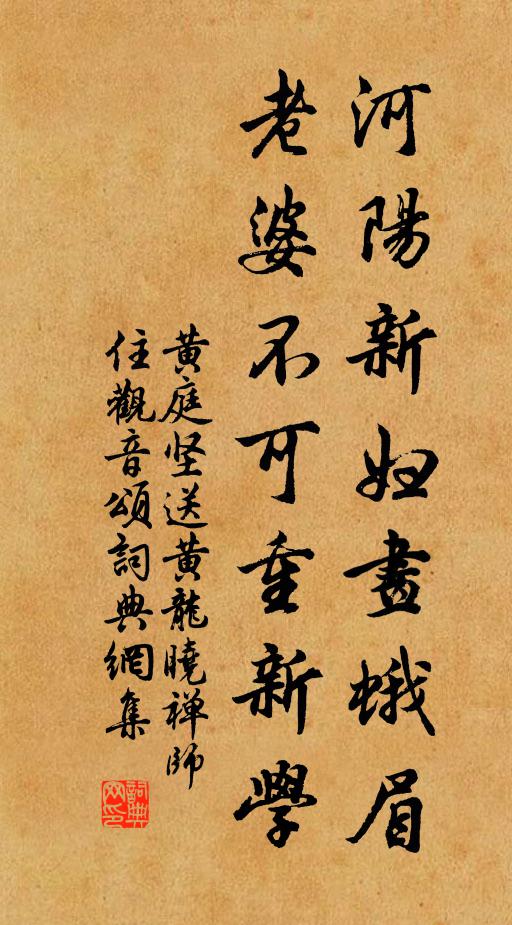 河陽新妇畫蛾眉
老婆不可重新學
黄庭坚送黄龍曉禅師
住觀音頌詞典網集
詞典网印